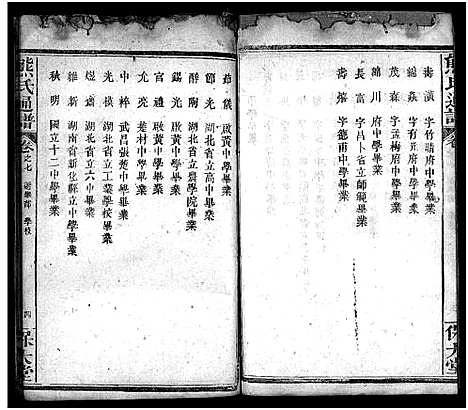 熊氏通譜
壽濱 字竹牆府中學畢業
錦森 字有元府中學畢業
茂森 字孟梅府中學畢業
錦川 府中學畢業
長富 字昌卜省立師範畢業
壽 字德甫中學畢業
保大堂
啟黃中學畢業
節光 湖北省立高中畢業
醉 湖北省立農學院畢業
錫光 啟黃中學畢業
官禮 啟黃中學畢業
尤炎 楚材中學畢業
中梓 武昌張後中學畢業
光 湖北省立工業學校畢業
煜齋 湖北省立六中畢業
維新 湖南省新化縣立中學畢業
秋明 國立十二中學畢業
熊氏通譜
卷之七
學校
四
保大堂